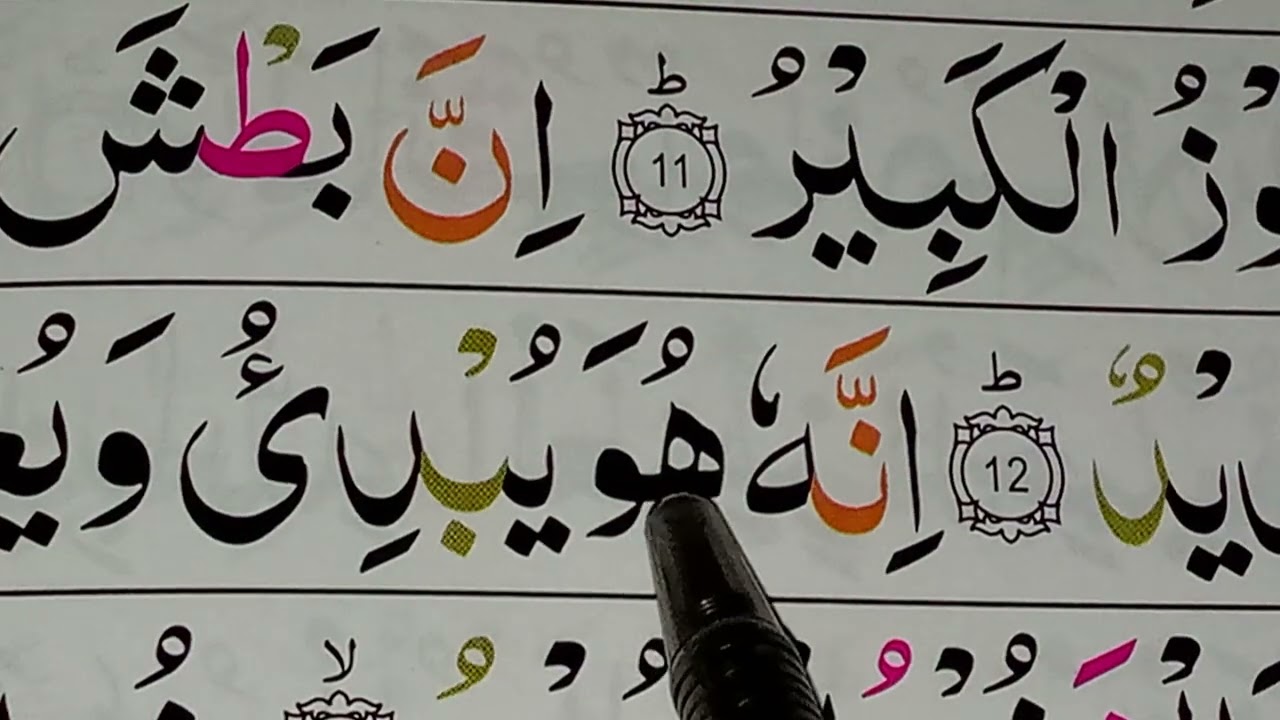 وْزُ الْكَبِيْرُ ؕ 11 اِنَّ بَطْشَ
يْدٌ ؕ 12 اِنَّهٗ هُوَ يُبْدِئُ وَيُع